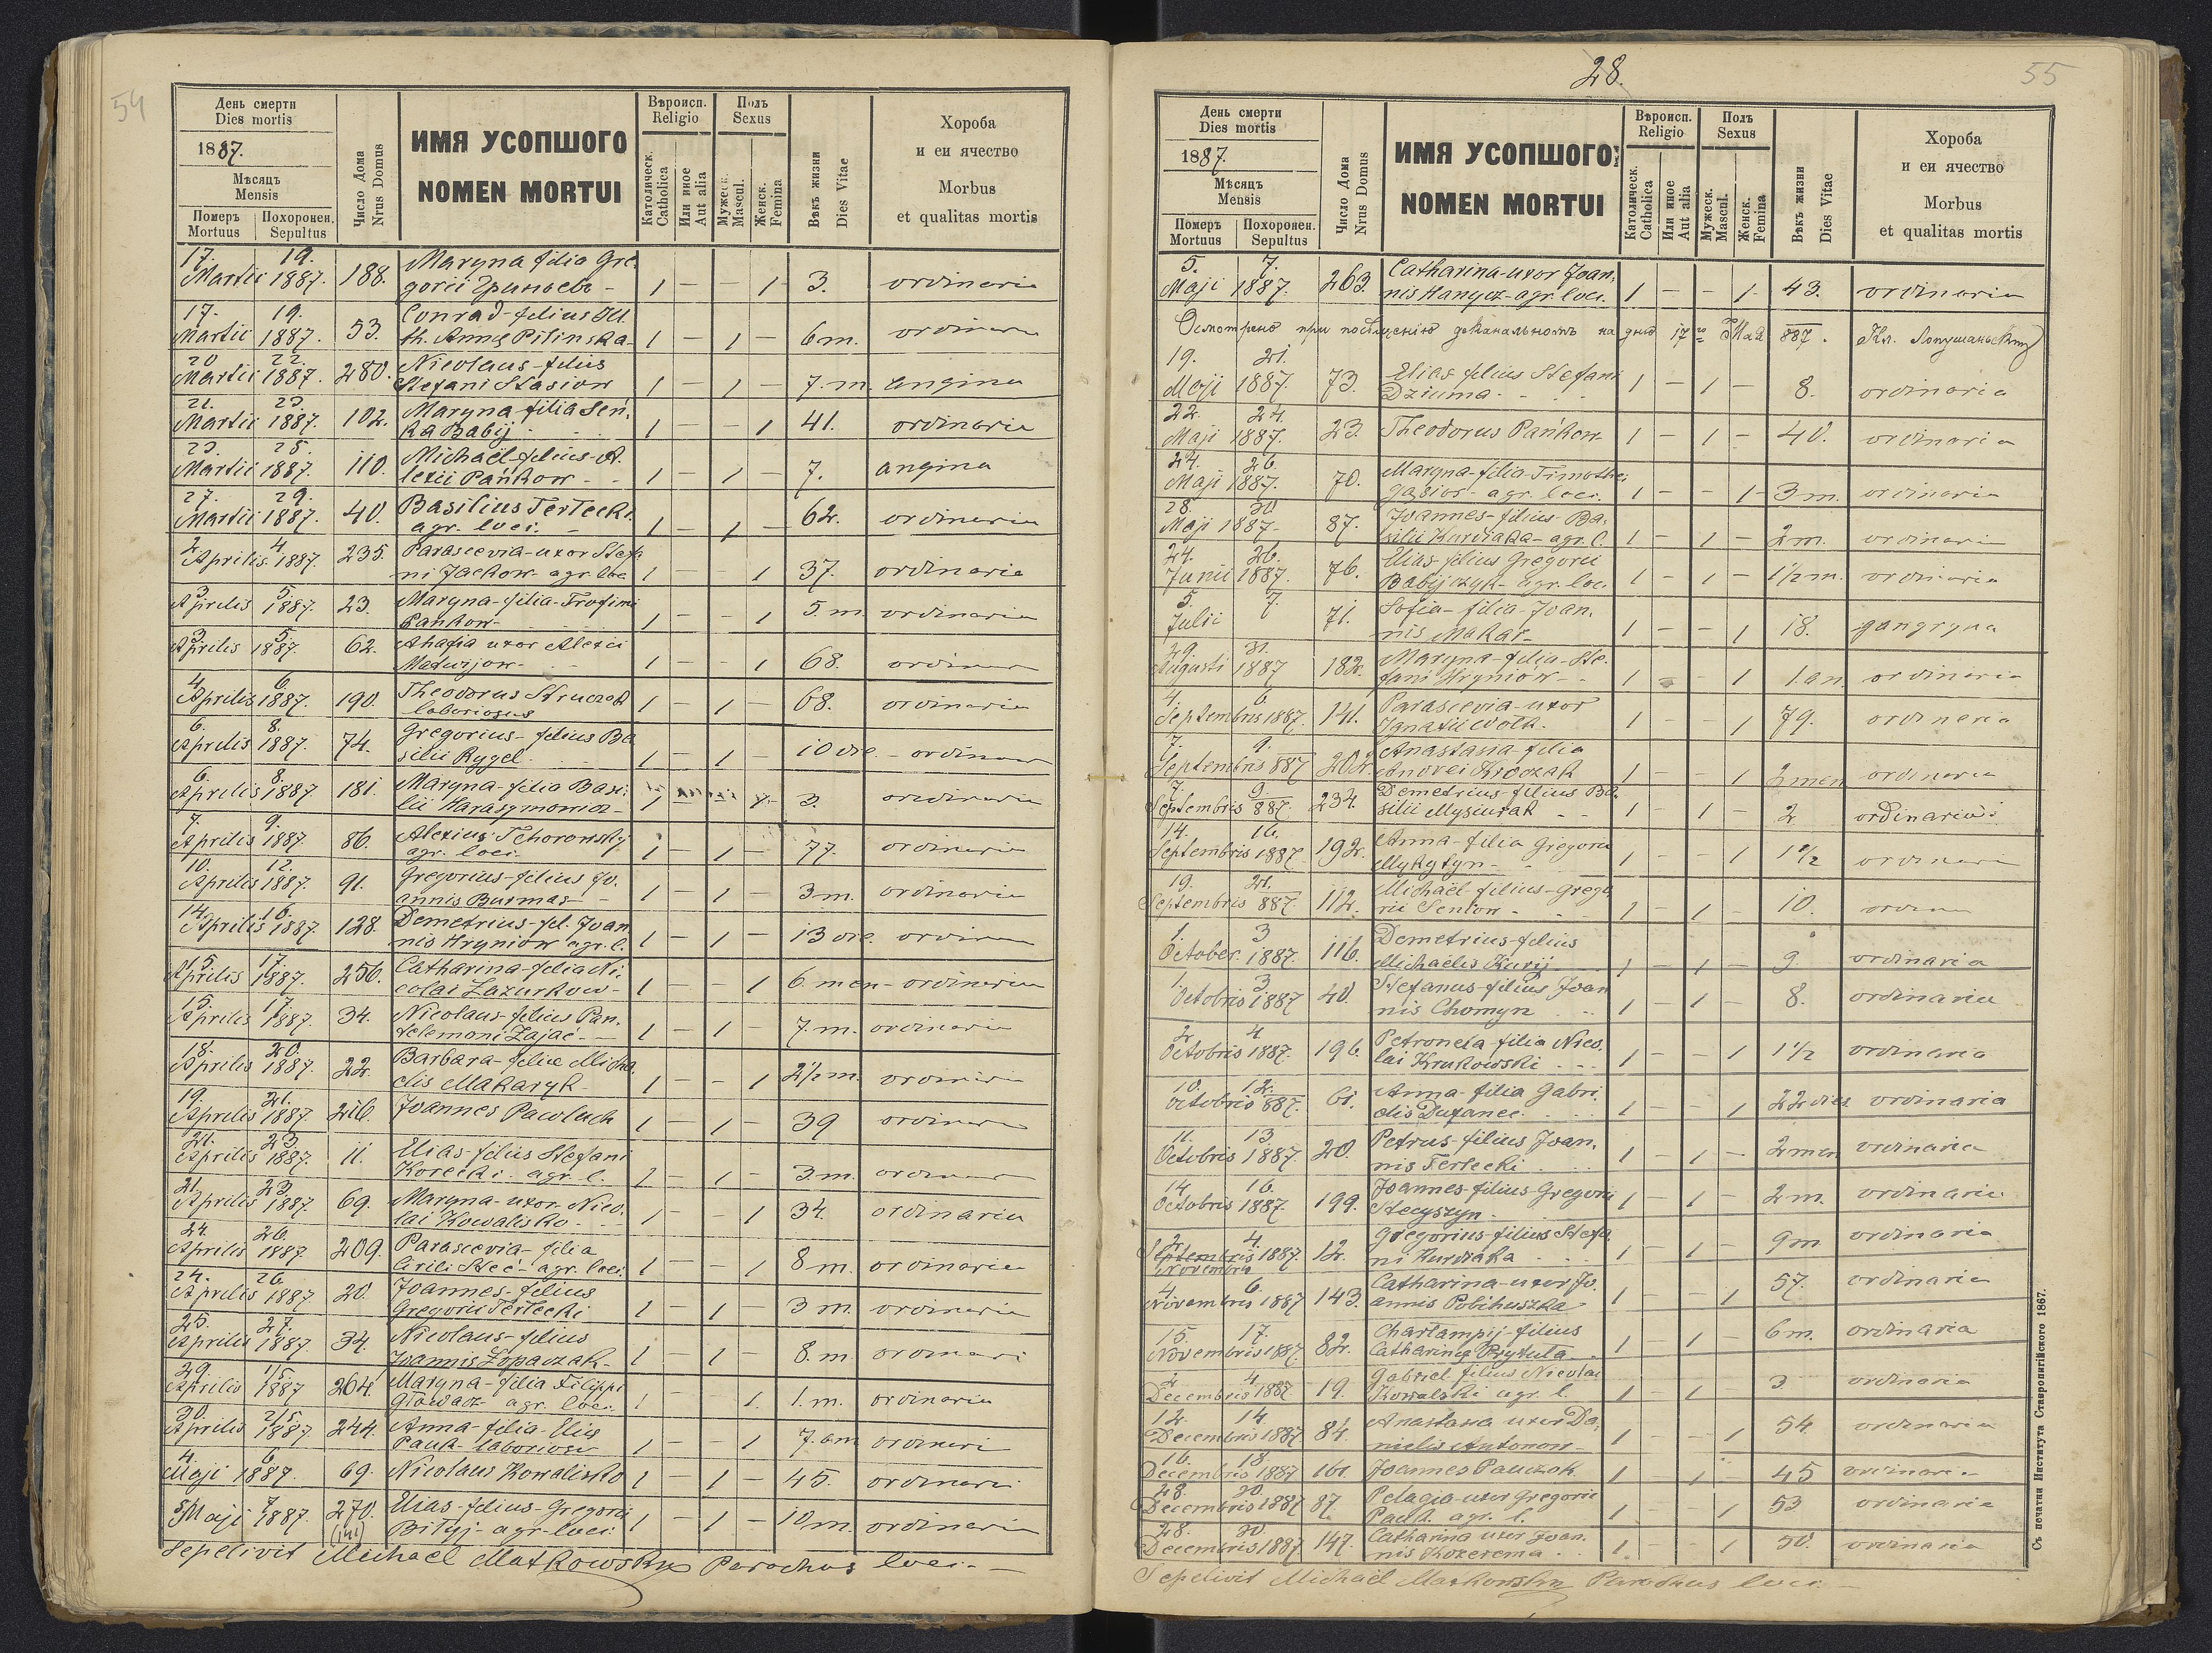 54
День смерти
Dies mortis
1887.
Мѣсяць
Mensis
Померъ
Mortuus
Похоронен.
Sepultus
Число Дома
Nrus Domus
ИМЯ УСОПШОГО
NOMEN MORTUI
Вѣроисп.
Religio
Католическ.
Catholica
Или иное
Aut alia
Полъ
Sexus
Мужеск.
Mascul.
Женск.
Femina
Вѣкъ жизни
Dies Vitae
Хороба
и еи ячество
Morbus
et qualitas mortis
17. 19. Maryna filia Gre-
Martii 1887. 188. gorii 1 - - 1 3. ordinaria
17. 19. Conrad-filius
Martii 1887. 53. th. Annæ Pilinska 1 - 1 - 6 m. ordinaria
20 22. Nicolaus-filius
Martii 1887. 280. Stefani Stasiow 1 - 1 - 7. m. angina
21. 23. Maryna-filia Sen-
Martii 1887. 102. ka Babij 1 - - 1 41. ordinaria
23. 25. Michaël-filius A-
Martii 1887. 110. lexii Pańkow 1 - 1 - 7. angina
27. 29. Basilius Terlecki
Martii 1887. 40. agr. loci. 1 - 1 - 62. ordinaria
2 4 Parascevia-uxor Stefa
Aprilis 1887. 235. ni Jackow agr. loc 1 - - 1 37. ordinaria
3 5. Maryna-filia-Trofimi
Aprilis 1887. 23. Pankow 1 - - 1 5. m ordinaria
3 5 Ahafia uxor Alexii
Aprilis 1887. 62. 1 - - 1 68. ordinar
4 6. Theodorus Struczak
Aprilis 1887. 190. laboriosus 1 - 1 - 68. ordinaria
6. 8. Gregorius-filius Ba
Aprilis 1887. 74. silii Rygel 1 - 1 - 10 die ordinar
6. 8. Maryna-filia Basi-
Aprilis 1887. 181. lii Harasymowicz 1 - - 1 3. ordinaria
7. 9. Alexius Tchorowsky
Aprilis 1887. 86. agr. loci. 1 - 1 - 77. ordinaria
10. 12. Gregorius-filius Jo-
Aprilis 1887. 91. annis Burmas 1 - 1 - 3 m. ordinaria
14. 16. Demetrius-fil. Joan
Aprilis 1887. 128. nis Hryniow agr. l. 1 - 1 - 13 die. ordinar
15 17. Catharina-filia Ni-
Aprilis 1887. 256. colai Lazurkow 1 - - 1 6. men- ordinaria
15 17. Nicolaus-filius Pan-
Aprilis 1887. 34. telemoni Zając 1 - 1 - 7. m. ordinaria
18. 20. Barbara-filia Micha-
Aprilis 1887. 22. elis Makaryk 1 - - 1 2½ m. ordinaria
19. 21. Joannes Pawluch
Aprilis 1887. 216. 1 - 1 - 39 ordinar
21. 23 Elias-filius Stefani
Aprilis 1887. 11. Korecki agr. l. 1 - 1 - 3. m. ordinar
21. 23. Maryna-uxor Nico
Aprilis 1887. 69. lai Kowalisko 1 - - 1 34. ordinaria
24. 26. Parascevia-filia
Aprilis 1887. 209. Cirili Steć agr. loci. 1 - - 1 8 m. ordinaria
24. 26. Joannes-filius
Aprilis 1887 20. Gregorii Terlecki 1 - 1 - 3 m. ordinaria
25. 27. Nicolaus-filius
Aprilis 1887. 34. Joannis Łopaczak 1 - 1 - 8. m ordinari
29 1/5 Maryna-filia Filippi
Aprilis 1887 264. Gławacz agr. loci. 1 1. 1. m. ordinaria
30. 2/5. Anna-filia-Eliæ
Aprilis 1887 244. Pauk laboriosi 1 - - 1 7. ordinari
4. 6. Nicolaus Kowalisko
Maji 1887. 69. 1 - 1 - 45. ordinari
5 7 Elias-filius-Gregorii
Maji 1887. 270. (141) Biłyj agr. loci. 1 - 1 - 10 m. ordinaria
Sepelivit Michaël Matkowsky Parochus loci.
28.
55
День смерти
Dies mortis
1887.
Мѣсяць
Mensis
Померъ
Mortuus
Похоронен.
Sepultus
Число Дома
Nrus Domus
ИМЯ УСОПШОГО
NOMEN MORTUI
Вѣроисп.
Religio
Католическ.
Catholica
Или иное
Aut alia
Полъ
Sexus
Мужеск.
Mascul.
Женск.
Femina
Вѣкъ жизни
Dies Vitae
Хороба
и еи ячество
Morbus
et qualitas mortis
5. 7. Catharina-uxor Joan-
Maji 1887. 263. nis Hanycz-agr. loci. 1 - - 1 43. ordinaria
Осмотрено при посѣщенію деканальномъ на дню 17го Мая 887.
19. 21. Elias filius Stefani
Maji 1887. 73. Dziuma 1 - 1 - 8. ordinaria
22. 24. Theodorus Pańkow
Maji 1887. 23. 1 - 1 - 40. ordinaria
24. 26. Maryna-filia-Timothei
Maji 1887. 70. Gasior agr. loci. 1 - - 1 3 m. ordinaria
28. 30 Joannes-filius-Ba-
Maji 1887. 87. silii Kurdiaka-agr. l. 1 - 1 - 2 m. ordinaria
24. 26. Elias-filius Gregorii
Junii 1887. 76. Babijczyk-agr. loci. 1 - 1 - 1½ m. ordinaria
5. 7. Sofia-filia-Joan-
Julii 71. nis Makar 1 - - 1 18. gangryna
29. 31. Maryna-filia-Ste-
Augusti 1887 182. fani Hryniow 1 - - 1 1. an. ordinaria
4. 6. Parascevia-uxor
Septembris 1887. 141. Ignatii Wolk. 1 - - 1 79. ordinaria
7. 9. Anastasia-filia
Septembris 887 202. Andrei Kroczak 1 - - 1 2 men ordinaria
7. 9. Demetrius-filius Ba-
Septembris 887. 234. silii Mysiurak 1 - 1 - 2 ordinaria
14. 16. Anna-filia Gregorii
Septembris 1887 192. Mykytyn 1 - - 1 1½ ordinari
19. 21. Michaël filius-Grego
Septembris 887. 112. rii Seniow 1 - 1 - 10. ordin
1. 3 Demetrius-filius
October. 1887. 116. Michaëlis Kurij 1 - 1 - 9. ordinaria
1. 3 Stefanus-filius Joan
Octobris 1887 40. nis Chomyn 1 - 1 - 8. ordinaria
2 4 Petronela-filia Nico-
Octobris 1887. 196. lai Krukowski 1 - - 1 1½ ordinaria
10. 12. Anna-filia Gabri-
Octobris 887. 61. elis Dufanec 1 - - 1 22 dies ordinaria
11. 13 Petrus-filius Joan-
Octobris 1887. 20. nis Terlecki 1 - 1 - 2 men ordinaria
14. 16. Joannes-filius-Gregorii
Octobris 1887. 199. Stecyszyn 1 - 1 - 2 m. ordinaria
2. 4 Gregorius-filius Stefa
Septembris 1887. 12. ni Kurdiaka 1 - 1 - 9 m ordinaria
Novembris
4. 6. Catharina-uxor Jo-
Novembris 1887 143. annis Pobihuszka 1 - - 1 57. ordinaria
15. 17. Charłampij-filius
Novembris 1887. 82. Catharinæ Prytula 1 - 1 - 6 m. ordinaria
2 4. Gabriel filius Nicolai
Decembris 1887. 19. Kowalski agr. l. 1 - 1 - 3 ordinaria
12. 14. Anastasia uxor Da-
Decembris 1887 84. nielis Antonow 1 - - 1 54. ordinaria
16. 18. Joannes Pauczok
Decembris 1887 161. 1 1 - 45 ordinari
28. 30. Pelagia-uxor Gregorii
Decembris 1887 87. Pauk. agr. l. 1 - - 1 53 ordinaria
28. 30. Catharina uxor Joan-
Decembris 1887 147. nis 1. - - 1 50. ordinaria
Sepelivit Michaël Matkowsky Parochus loci
Съ печатни Института Ставропігійского 1867.